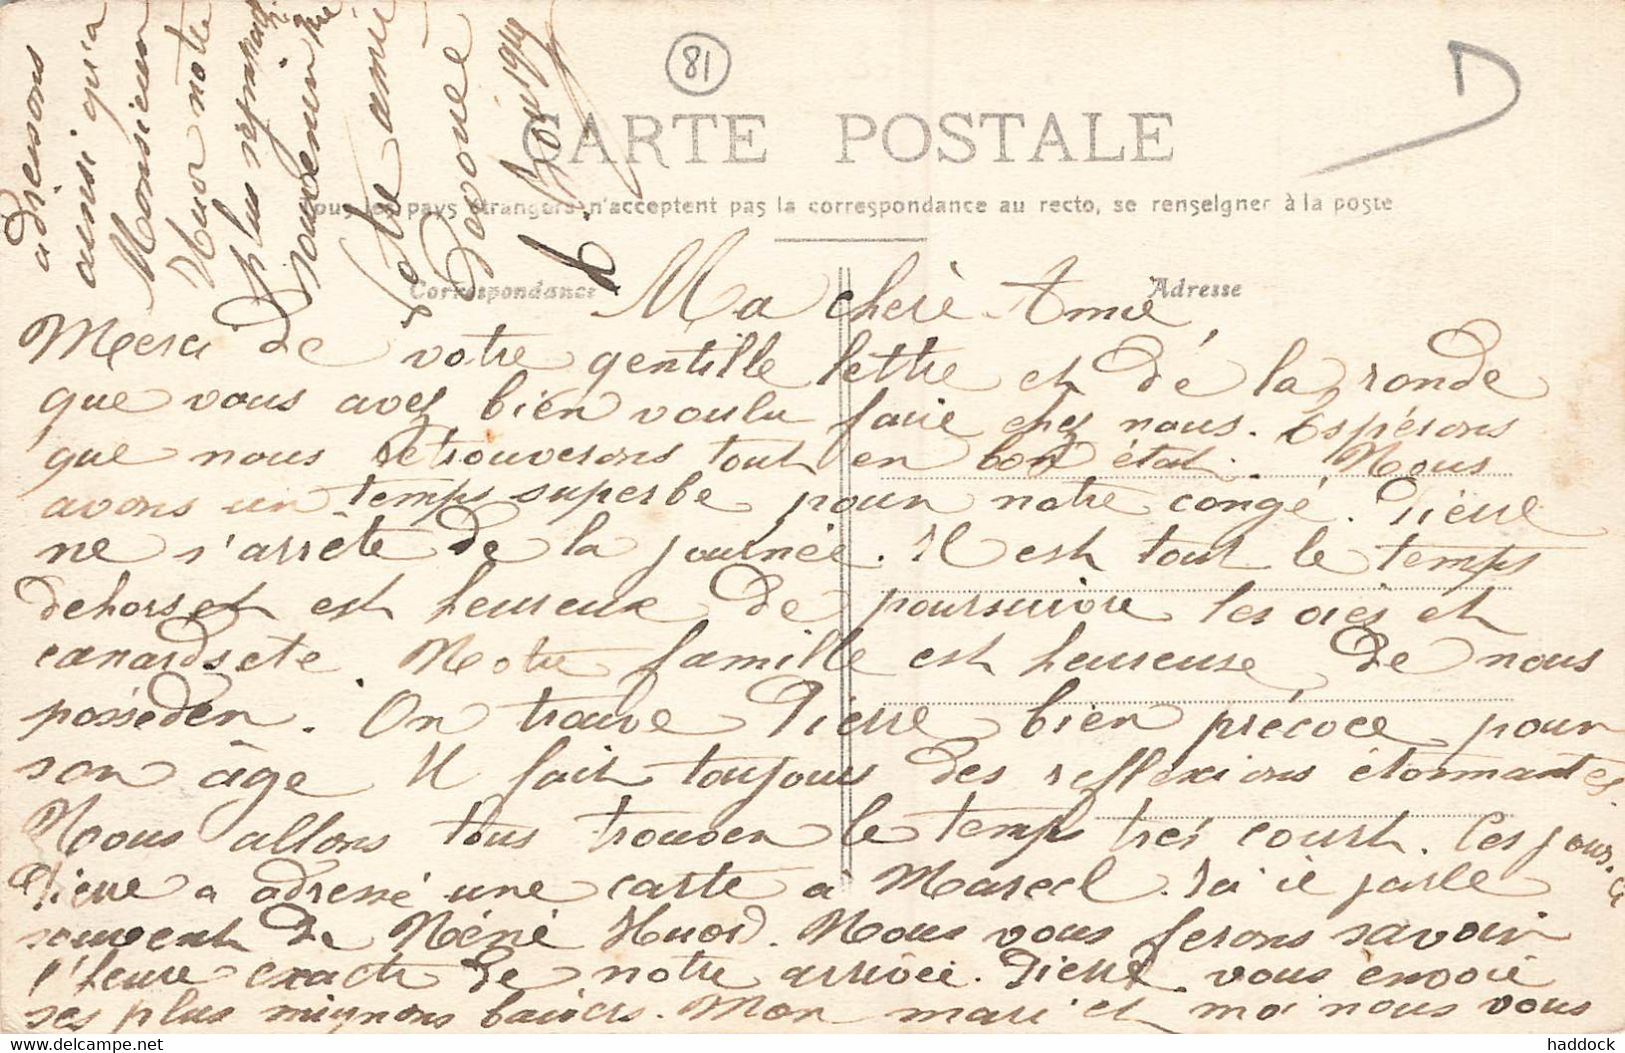 81
CARTE POSTALE
Tous les pays étrangers n'acceptent pas la correspondance au recto, se renseigner à la poste
Correspondance
Adresse
Ma chère Amie,
Merci de votre gentille lettre et de la ronde
que vous avez bien voulu faire chez nous. Espérons
que nous retrouverons tout en bon état. Nous
avons un temps superbe pour notre congé. Pierre
ne s'arrête de la journée. Il est tout le temps
dehors et est heureux de poursuivre les oies et
canards etc. Notre famille est heureuse de nous
posséder. On trouve Pierre bien précoce pour
son âge Il fait toujours des reflexions étonnantes.
Nous allons tous trouver le temps très court. Ces jours-ci
Pierre a adressé une carte à Marcel. Ici il parle
souvent de Néné Huor. Nous vous ferons savoir
l'heure exacte de notre arrivée. Pierre vous envoie
ses plus mignons baisers. Mon mari et moi nous vous
adressons
ainsi qu'à
Monsieur
Huor notre
plus sympathique
souvenir
Votre amie
dévouée
1914
haddock